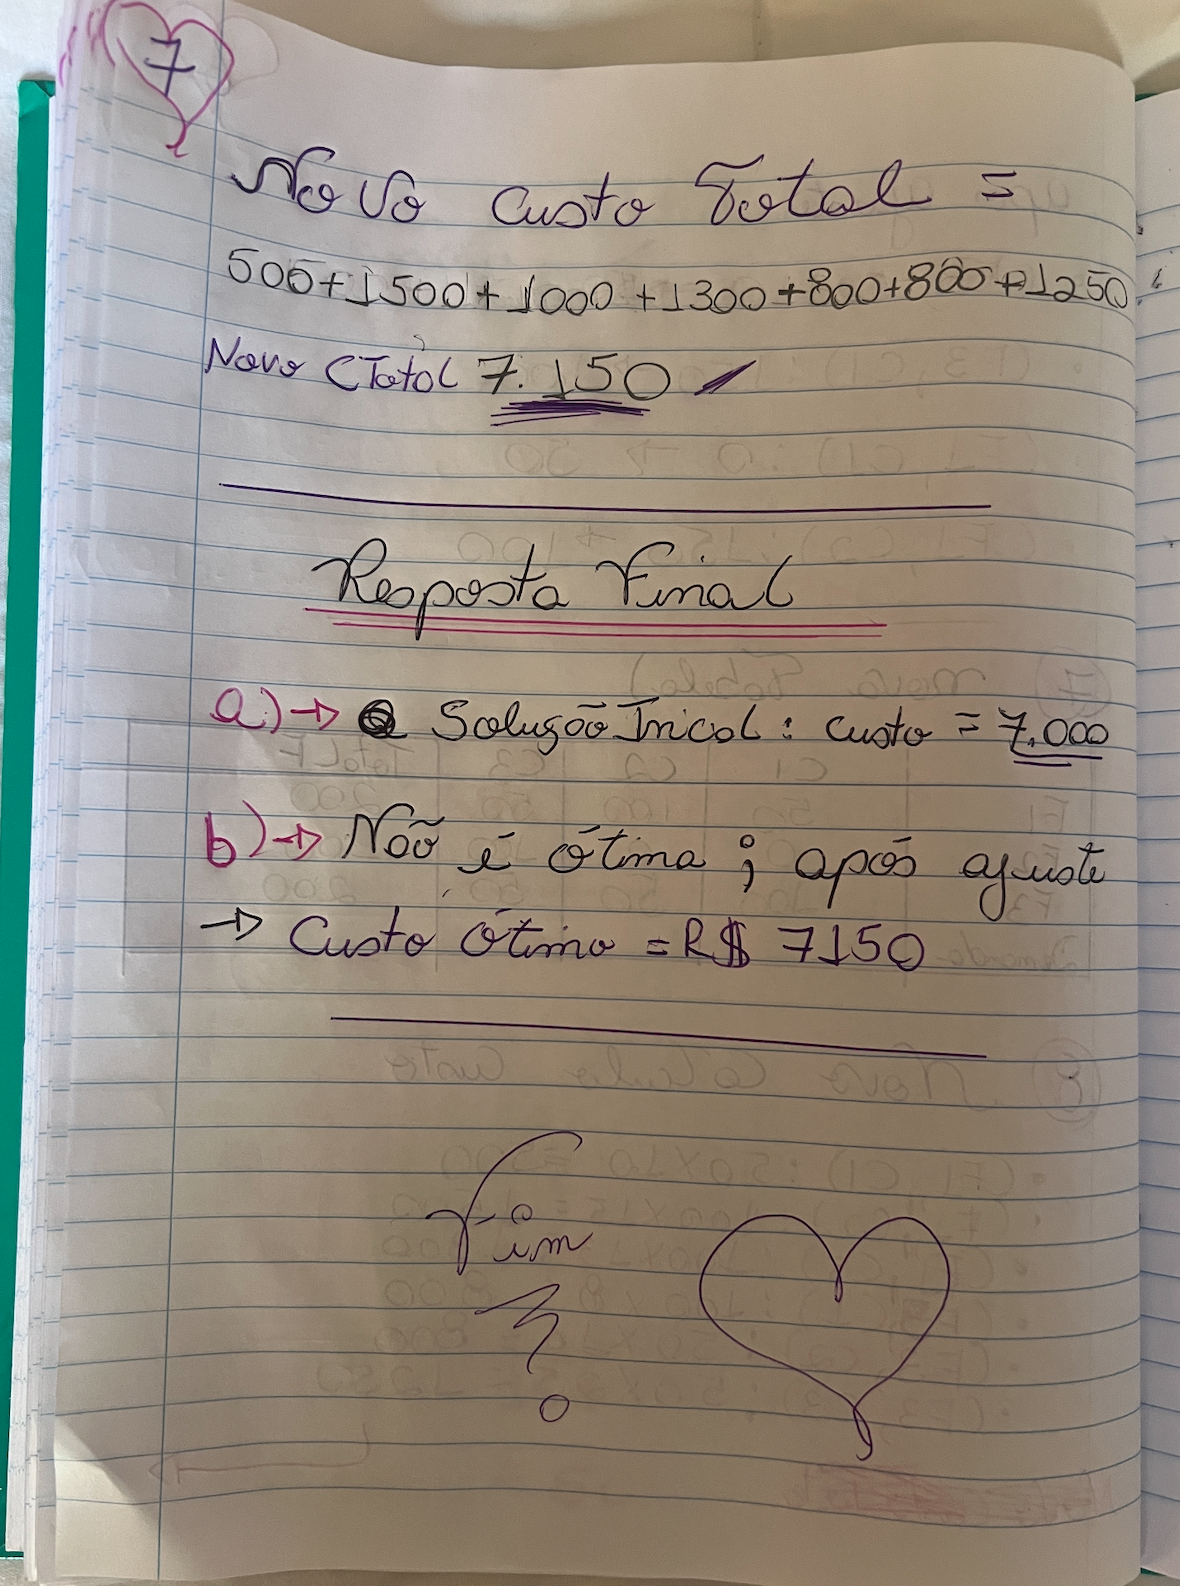 7
Novo Custo Total =
500+1500+1000+1300+800+800+1250
Novo CTotal 7.150
Resposta Final
a)→ Solução Inicial: custo = 7.000
b)→ Não é ótima; após ajuste
→ Custo Ótimo = R$ 7150
Fim
?